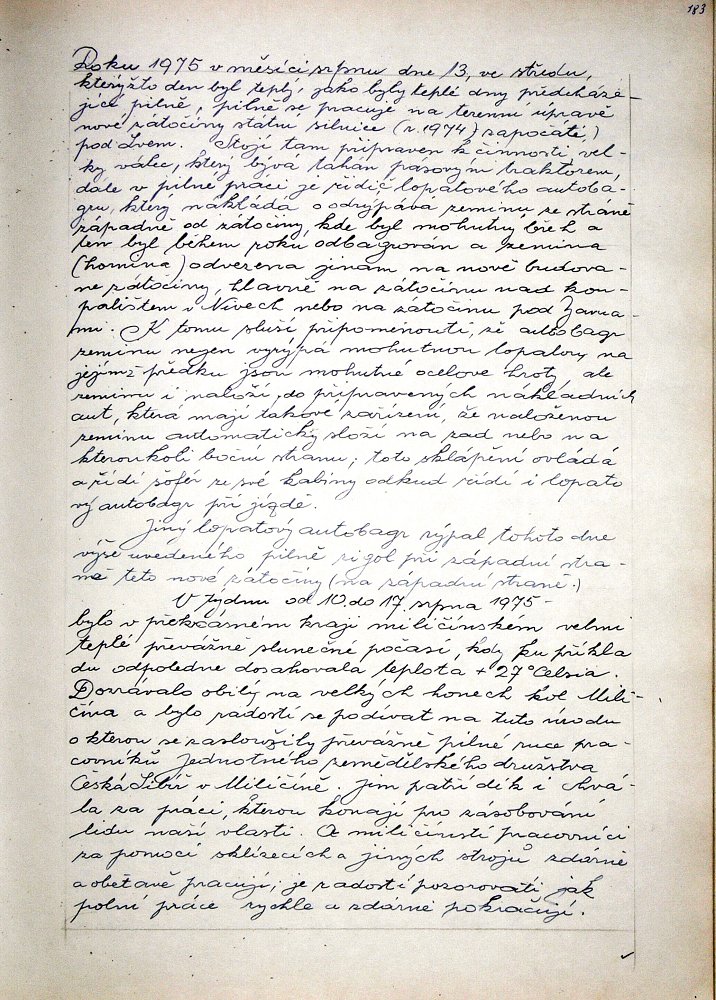 183
Roku 1975 v měsíci srpnu dne 13, ve středu,
kterýžto den byl teplý, jako byly teplé dny předcháze-
jící pilně, pilně se pracuje na terenní úpravě
nové zátočiny státní silnice (r. 1974) započaté,)
pod Lvem. Stojí tam připraven k činnosti vel-
ký válec, který bývá tahán pásovým traktorem,
dále v pilné práci je řidič lopatového autoba-
gru, který nakládá a odrýpává zeminu ze stráně
západně od zátočiny, kde byl mohutný břeh a
ten byl během roku odbagrován a zemina
(hornina) odvezena jinam na nově budova-
né zátočiny, hlavně na zátočinu nad kou-
palištěm v Nivech nebo na zátočinu pod
K tomu sluší připomenouti, že autobagr
zeminu nejen vyrýpá mohutnou lopatou, na
jejímž předku jsou mohutné ocelové hroty, ale
zeminu i naloží do připravených nákladních
aut, která mají takové zařízení, že naloženou
zeminu automaticky složí na zad nebo na
kteroukoli boční stranu; toto sklápění ovládá
a řídí šofér ze své kabiny odkud řídí i lopato
vý autobagr při jízdě.
Jiný lopatový autobagr rýpal tohoto dne
výše uvedeného pilně rigol při západní stra-
ně této nové zátočiny (na západní straně.)
V týdnu od 10. do 17. srpna 1975 -
bylo v překrásném kraji miličínském velmi
teplé převážně slunečné počasí, kdy ku příkla
du odpoledne dosahovala teplota + 27° Celsia.
Dozrávalo obilí na velkých honech kol Mili-
čína a bylo radostí se podívat na tuto úrodu
o kterou se zasloužily převážně pilné ruce pra-
covníků Jednotného zemědělského družstva
Česká Sibiř v Miličíně. Jim patří dík i chvá-
la za práci, kterou konají pro zásobování
lidu naší vlasti. A miličínští pracovníci
za pomoci sklízecích a jiných strojů zdárně
a obětavě pracují; je radostí pozorovati jak
polní práce rychle a zdárně pokračují.